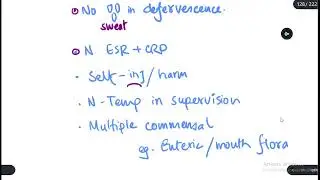 128 / 222
No in defervescence.
sweat
N ESR + CRP
Self-inj / harm
N-Temp in supervision
Multiple commensal
eg. Enteric / mouth flora